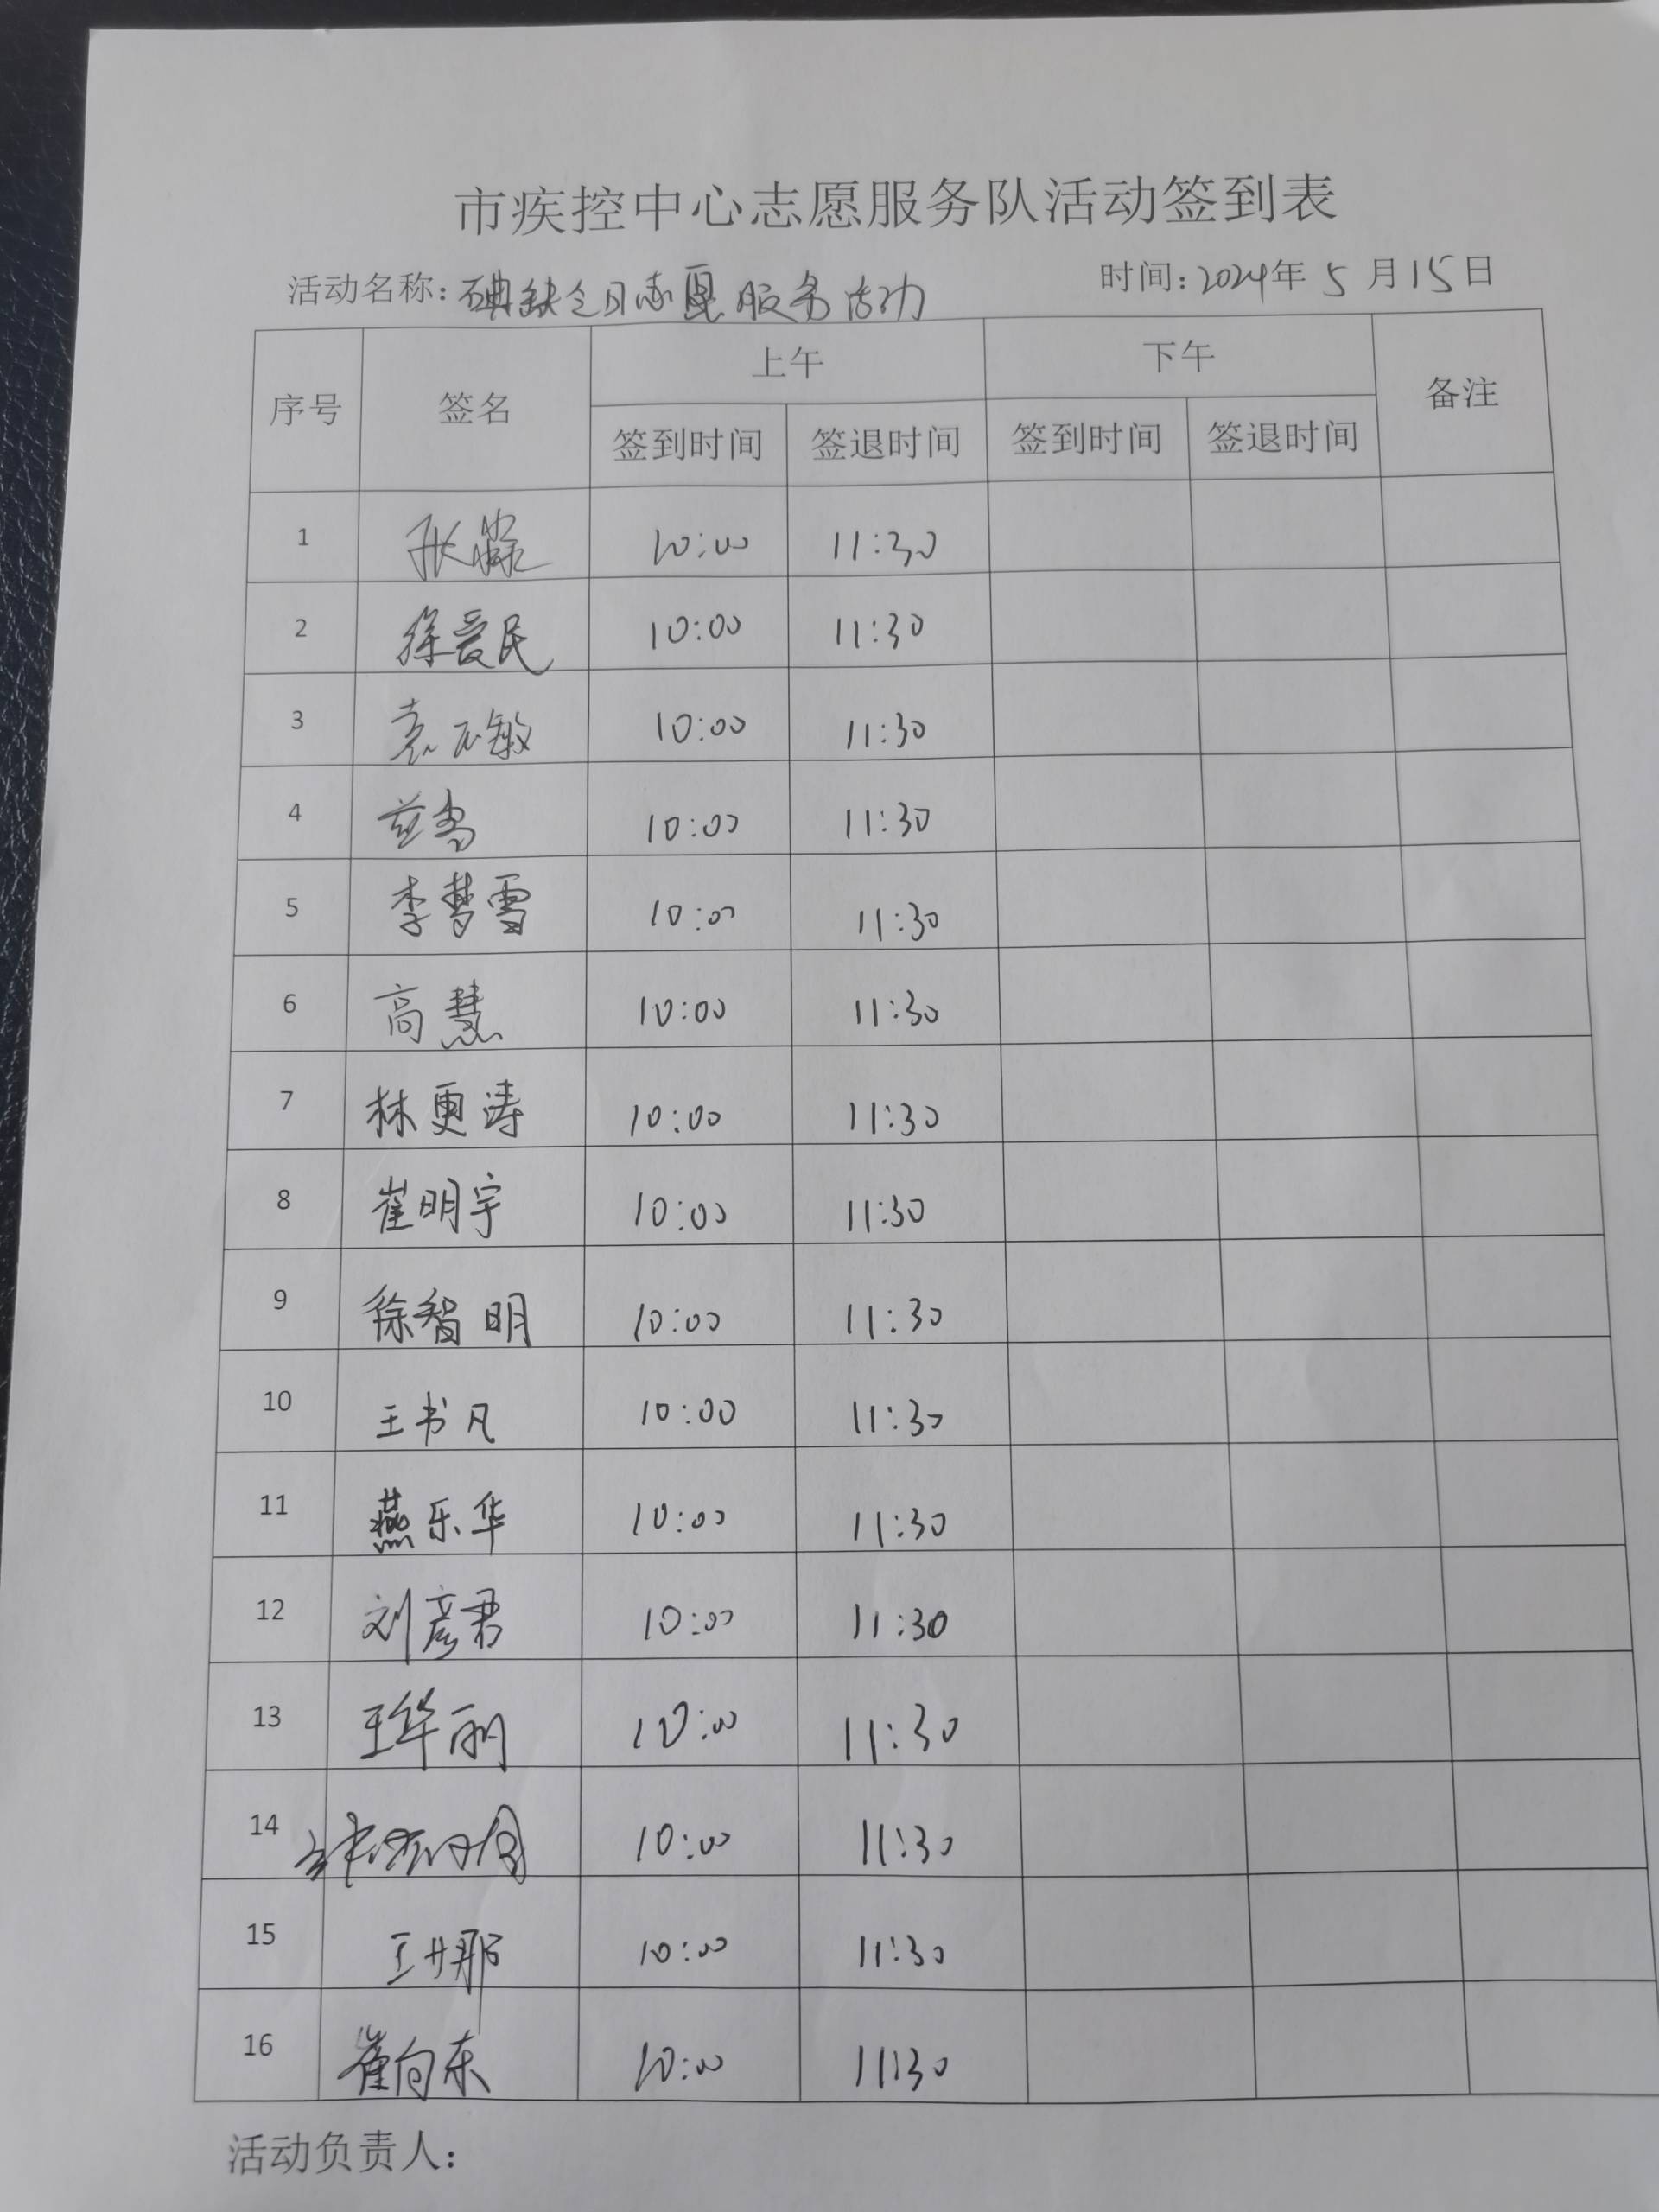 市疾控中心志愿服务队活动签到表
活动名称：碘缺乏日志愿服务活动 时间：2024年5月15日
序号 签名 上午 下午 备注
签到时间 签退时间 签到时间 签退时间
1 张 10:00 11:30
2 徐爱民 10:00 11:30
3 袁 敏 10:00 11:30
4 10:00 11:30
5 李梦雪 10:00 11:30
6 高慧 10:00 11:30
7 林更涛 10:00 11:30
8 崔明宇 10:00 11:30
9 徐智明 10:00 11:30
10 王书凡 10:00 11:30
11 燕乐华 10:00 11:30
12 刘彦君 10:00 11:30
13 王华丽 10:00 11:30
14 10:00 11:30
15 王丹那 10:00 11:30
16 崔向东 10:00 11:30
活动负责人：